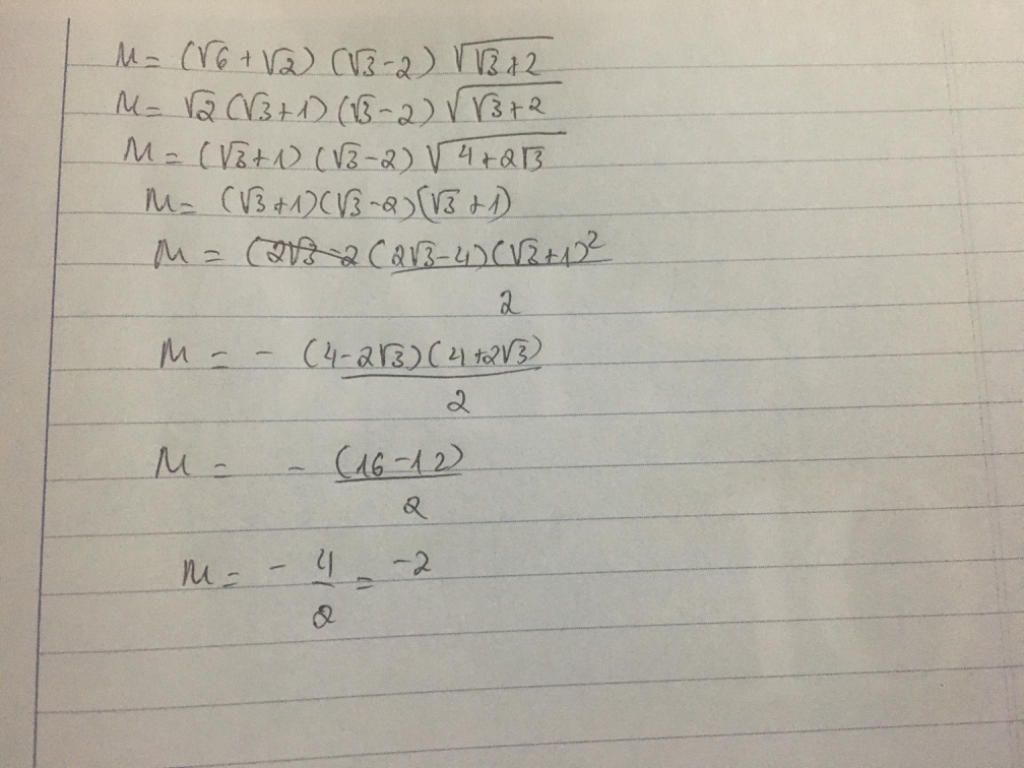 M = (√6 + √2) (√3 - 2) √(√3 + 2)
M = √2 (√3 + 1) (√3 - 2) √(√3 + 2)
M = (√3 + 1) (√3 - 2) √(4 + 2√3)
M = (√3 + 1) (√3 - 2) (√3 + 1)
M = (2√3 - 2 (2√3 - 4) (√3 + 1)²
2
M = - (4 - 2√3) (4 + 2√3)
2
M = - (16 - 12)
2
M = - 4/2 = -2